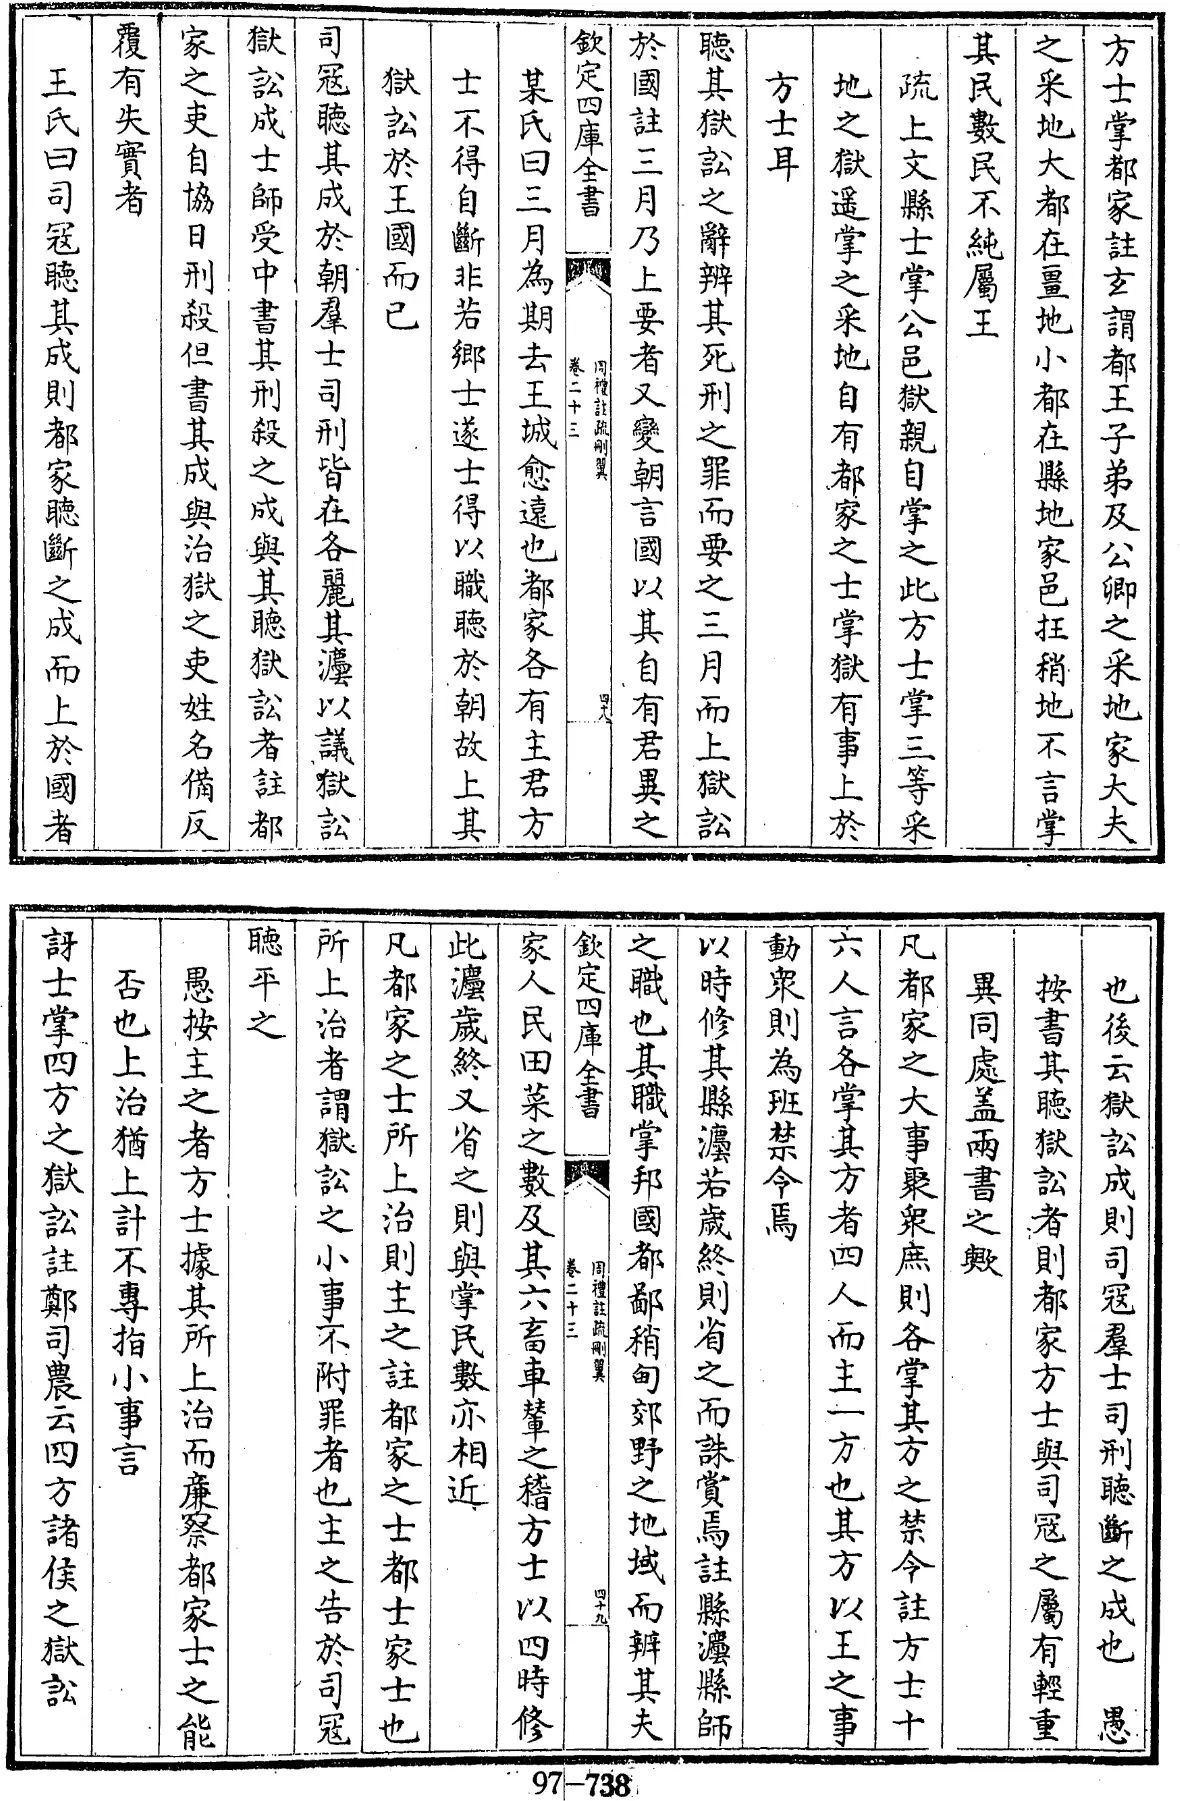 方士掌都家註玄謂都王子弟及公卿之采地家大夫
之采地大都在畺地小都在縣地家邑在稍地不言掌
其民數民不純屬王
疏上文縣士掌公邑獄親自掌之此方士掌三等采
地之獄遥掌之采地自有都家之士掌獄有事上於
方士耳
聽其獄訟之辭辨其死刑之罪而要之三月而上獄訟
於國註三月乃上要者又變朝言國以其自有君異之
欽定四庫全書
周禮註疏刪翼
卷二十三
四十八
某氏曰三月為期去王城愈遠也都家各有主君方
士不得自斷非若鄉士遂士得以職聽於朝故上其
獄訟於王國而已
司冦聽其成於朝羣士司刑皆在各麗其灋以議獄訟
獄訟成士師受中書其刑殺之成與其聽獄訟者註都
家之吏自協日刑殺但書其成與治獄之吏姓名備反
覆有失實者
王氏曰司冦聽其成則都家聽斷之成而上於國者
也後云獄訟成則司冦羣士司刑聽斷之成也　愚
按書其聽獄訟者則都家方士與司冦之屬有輕重
異同處盖兩書之歟
凡都家之大事聚衆庶則各掌其方之禁令註方士十
六人言各掌其方者四人而主一方也其方以王之事
動衆則為班禁令焉
以時修其縣灋若歲終則省之而誅賞焉註縣灋縣師
之職也其職掌邦國都鄙稍甸郊野之地域而辨其夫
欽定四庫全書
周禮註疏刪翼
卷二十三
四十九
家人民田菜之數及其六畜車輦之稽方士以四時修
此灋歲終又省之則與掌民數亦相近
凡都家之士所上治則主之註都家之士都士家士也
所上治者謂獄訟之小事不附罪者也主之告於司冦
聽平之
愚按主之者方士據其所上治而亷察都家士之能
否也上治猶上計不專指小事言
訝士掌四方之獄訟註鄭司農云四方諸侯之獄訟
97-738